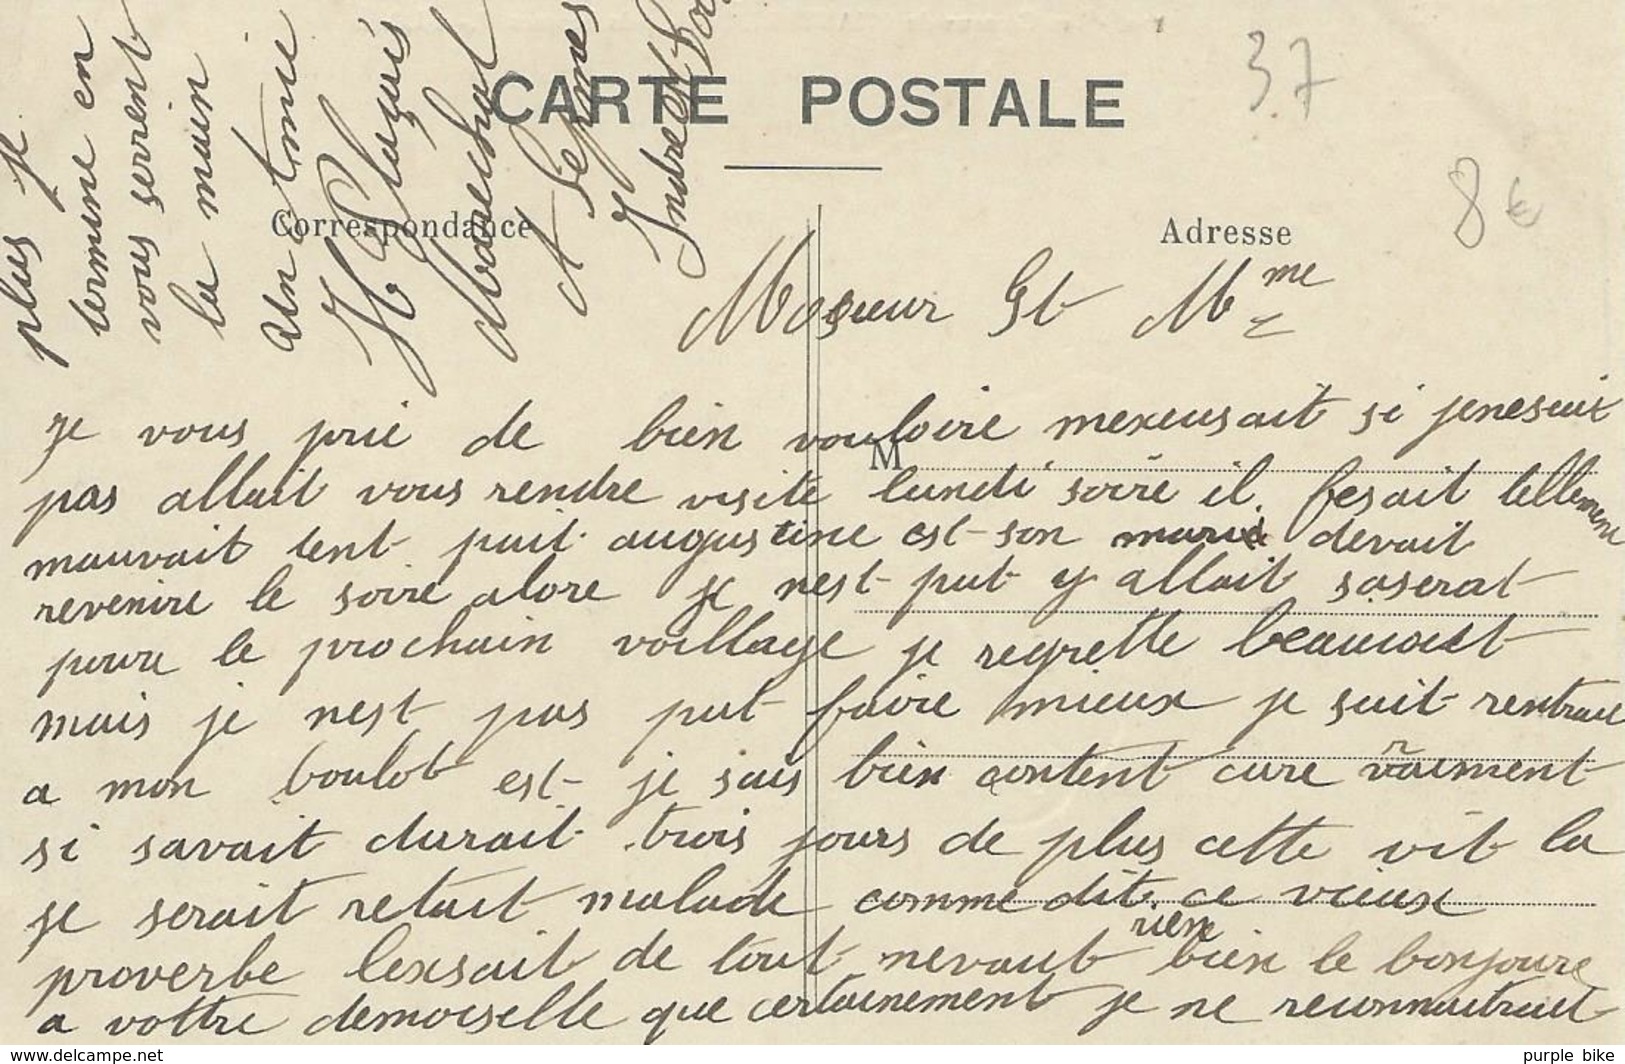 CARTE POSTALE
37
8 €
Correspondance
Adresse
M
Mosieur Et Mme
Je vous prie de bien vouloire mexcusait si jenesuit
pas allait vous rendre visite lundi soire il fesait tellement
mauvait tent puit augustine est son marie devait
revenire le soire alore je nest put y allait saserat
poure le prochain voillage je regrette beaucoust
mais je nest pas put faire mieux je suit rentrait
a mon boulot est je sais bien content cure vraiment
si savait durait trois jours de plus cette vit la
je serait retait malade comme dit ce vieux
proverbe lexsait de tout nevaut rien bien le bonjoure
a vottre demoiselle que certainement je ne reconnuitrait
plus je
termine en
vous serrent
la main
Un Amie
H Pluquis
Marechal
A Lepines
Indre et Loi
www.delcampe.net
purple bike